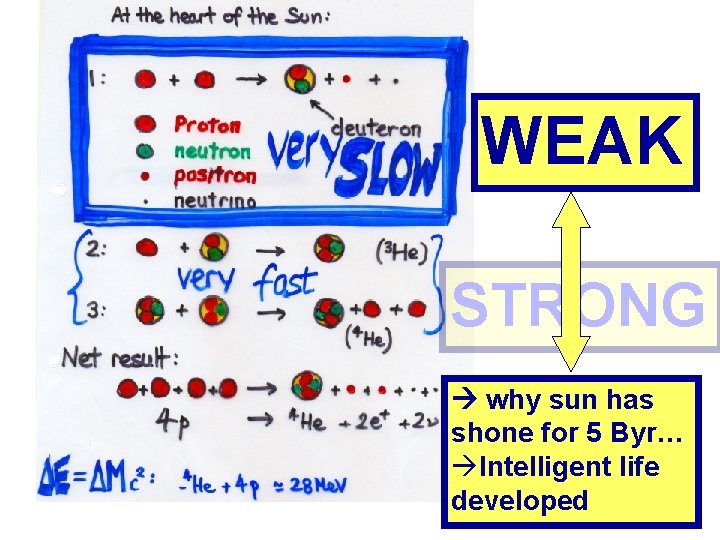 At the heart of the Sun:
1: + → + +
deuteron
Proton
neutron
positron
neutrino
very SLOW
WEAK
2: + → (³He)
very fast
3: + → + +
(⁴He)
STRONG
Net result:
+ + + → + + + ·+·
4p → ⁴He + 2e⁺ + 2ν
ΔE = ΔMc²: -⁴He + 4p ≃ 28 MeV
→ why sun has
shone for 5 Byr…
→Intelligent life
developed